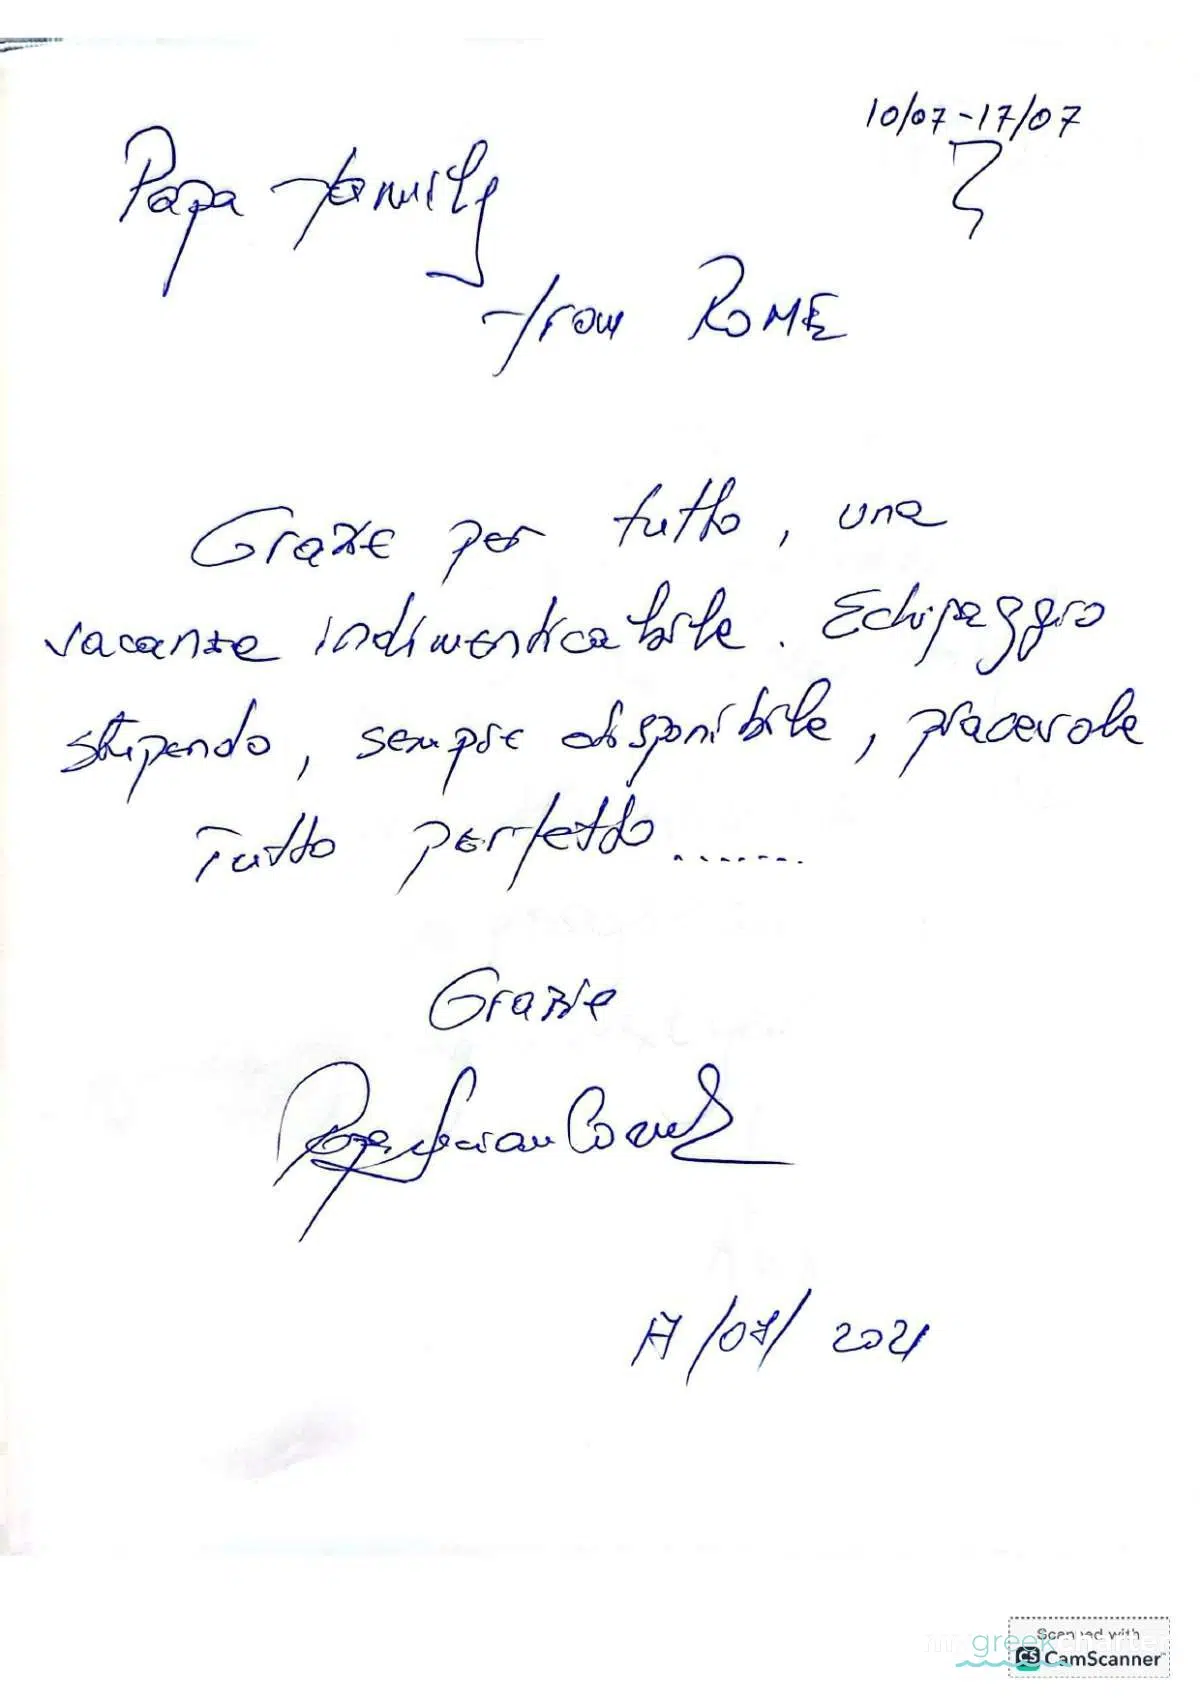 10/07-17/07
Papa family
from ROME
Grazie per tutto, una
vacanza indimenticabile. Echipaggio
stupendo, sempre disponibile, piacevole
Tutto perfetto........
Grazie
Papa
17/07/2021
Scanned with
my greek charter
CS CamScanner